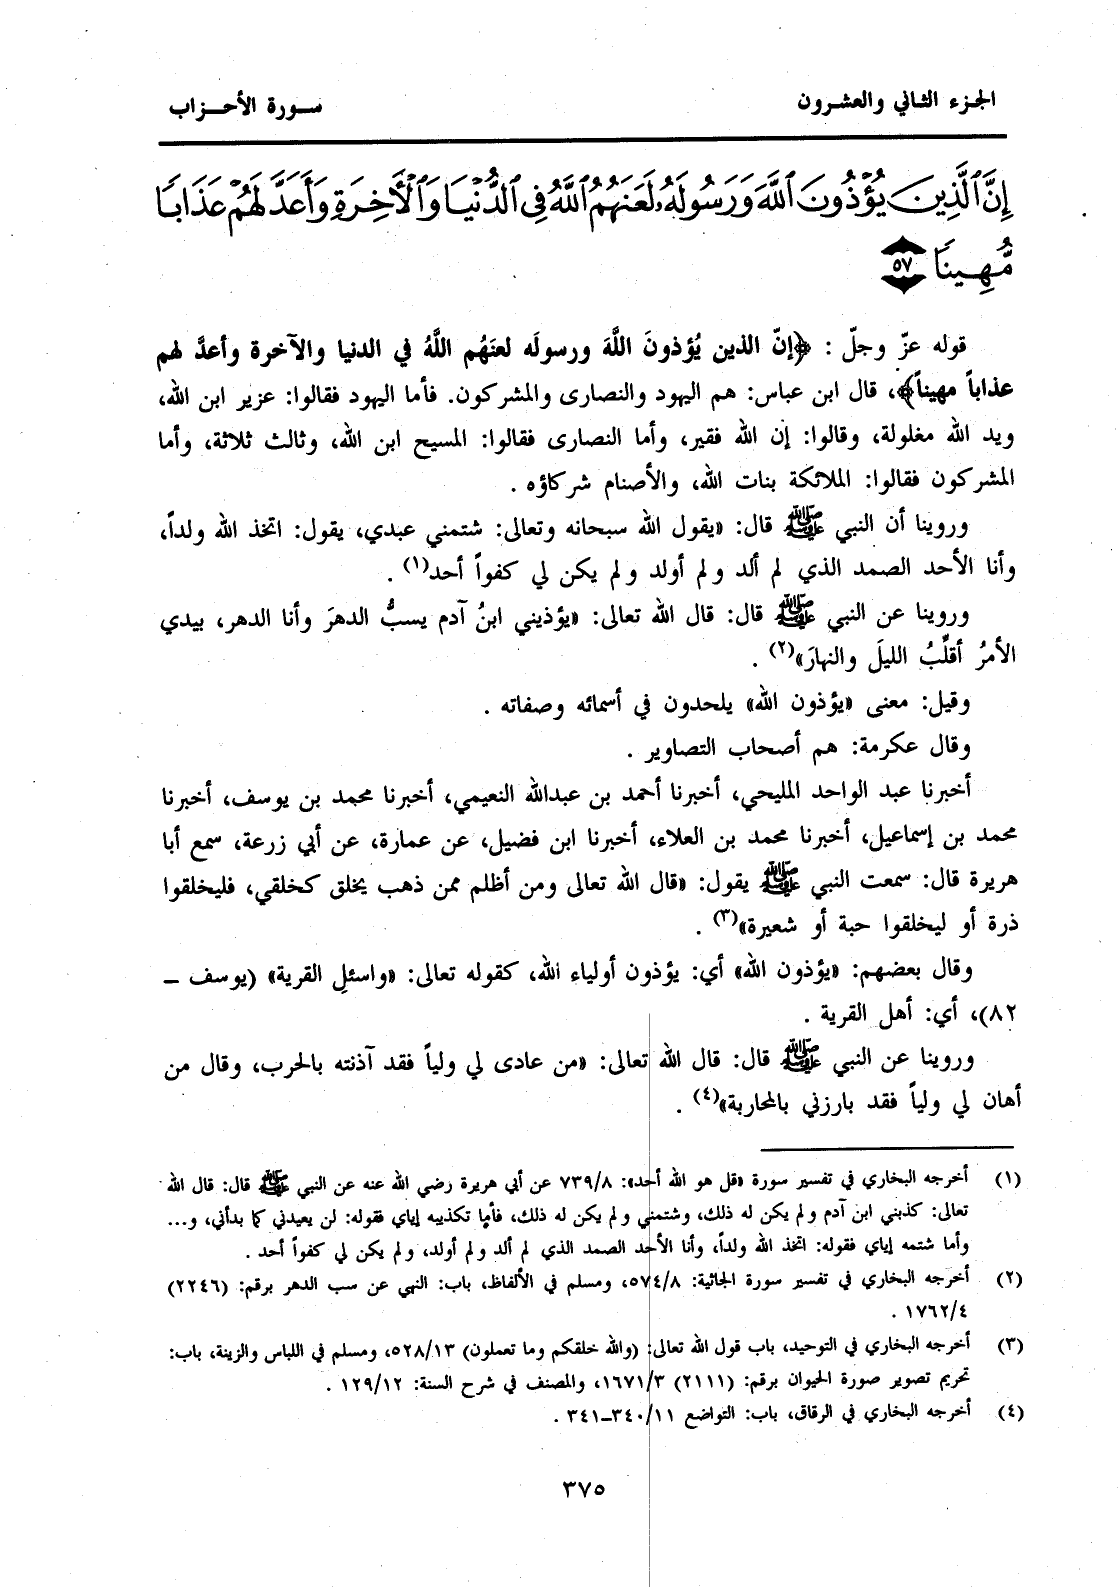 الجزء الثاني والعشرون
سورة الأحزاب
إِنَّ ٱلَّذِينَ يُؤْذُونَ ٱللَّهَ وَرَسُولَهُۥ لَعَنَهُمُ ٱللَّهُ فِى ٱلدُّنْيَا وَٱلْأَخِرَةِ وَأَعَدَّ لَهُمْ عَذَابًا
مُّهِينًا ٥٧
قوله عزّ وجلّ : ﴿إنّ الذين يُؤذونَ اللَّهَ ورسولَه لعنَهُم اللَّهُ في الدنيا والآخرة وأعدَّ لهم
عذاباً مهيناً﴾، قال ابن عباس: هم اليهود والنصارى والمشركون. فأما اليهود فقالوا: عزير ابن الله،
ويد الله مغلولة، وقالوا: إن الله فقير، وأما النصارى فقالوا: المسيح ابن الله، وثالث ثلاثة، وأما
المشركون فقالوا: الملائكة بنات الله، والأصنام شركاؤه .
وروينا أن النبي ﷺ قال: «يقول الله سبحانه وتعالى: شتمني عبدي، يقول: اتخذ الله ولداً،
وأنا الأحد الصمد الذي لم ألد ولم أولد ولم يكن لي كفواً أحد(١) .
وروينا عن النبي ﷺ قال: قال الله تعالى: «يؤذيني ابنُ آدم يسبُّ الدهرَ وأنا الدهر، بيدي
الأمرُ أقلِّبُ الليلَ والنهارَ»(٢) .
وقيل: معنى «يؤذون الله» يلحدون في أسمائه وصفاته .
وقال عكرمة: هم أصحاب التصاوير .
أخبرنا عبد الواحد المليحي، أخبرنا أحمد بن عبدالله النعيمي، أخبرنا محمد بن يوسف، أخبرنا
محمد بن إسماعيل، أخبرنا محمد بن العلاء، أخبرنا ابن فضيل، عن عمارة، عن أبي زرعة، سمع أبا
هريرة قال: سمعت النبي ﷺ يقول: «قال الله تعالى ومن أظلم ممن ذهب يخلق كخلقي، فليخلقوا
ذرة أو ليخلقوا حبة أو شعيرة»(٣) .
وقال بعضهم: «يؤذون الله» أي: يؤذون أولياء الله، كقوله تعالى: «واسئلِ القرية» (يوسف ــ
٨٢)، أي: أهل القرية .
وروينا عن النبي ﷺ قال: قال الله تعالى: «من عادى لي ولياً فقد آذنته بالحرب، وقال من
أهان لي ولياً فقد بارزني بالمحاربة»(٤) .
(١) أخرجه البخاري في تفسير سورة «قل هو الله أحد»: ٧٣٩/٨ عن أبي هريرة رضي الله عنه عن النبي ﷺ قال: قال الله
تعالى: كذبني ابن آدم ولم يكن له ذلك، وشتمني ولم يكن له ذلك، فأما تكذيبه إياي فقوله: لن يعيدني كما بدأني، و...
وأما شتمه إياي فقوله: اتخذ الله ولداً، وأنا الأحد الصمد الذي لم ألد ولم أولد، ولم يكن لي كفواً أحد .
(٢) أخرجه البخاري في تفسير سورة الجاثية: ٥٧٤/٨، ومسلم في الألفاظ، باب: النهي عن سب الدهر برقم: (٢٢٤٦)
١٧٦٢/٤ .
(٣) أخرجه البخاري في التوحيد، باب قول الله تعالى: (والله خلقكم وما تعملون) ٥٢٨/١٣، ومسلم في اللباس والزينة، باب:
تحريم تصوير صورة الحيوان برقم: (٢١١١) ١٦٧١/٣، والمصنف في شرح السنة: ١٢٩/١٢ .
(٤) أخرجه البخاري في الرقاق، باب: التواضع ٣٤٠/١١ـ٣٤١ .
٣٧٥